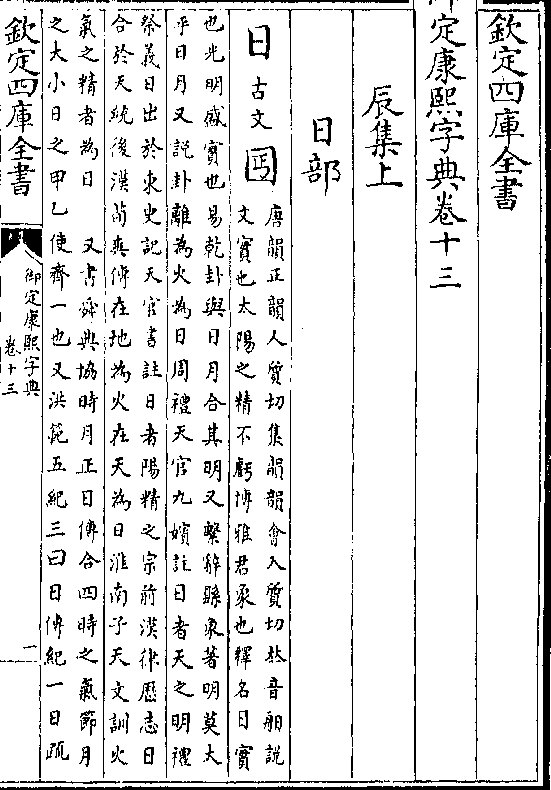 欽定四庫全書
御定康熙字典卷十三
辰集上
日部
日 古文 囸
唐韻正韻人質切集韻韻會入質切𠀤音馹說
文實也太陽之精不虧博雅君象也釋名日實
也光明盛實也易乾卦與日月合其明又繫辭縣象著明莫大
乎日月又說卦離為火為日周禮天官九嬪註日者天之明禮
祭義日出於東史記天官書註日者陽精之宗前漢律歷志日
合於天統後漢荀爽傳在地為火在天為日淮南子天文訓火
氣之精者為日 又書舜典協時月正日傳合四時之氣節月
之大小日之甲乙使齊一也又洪範五紀三曰日傳紀一日疏
欽定四庫全書
御定康熙字典
卷十三
一